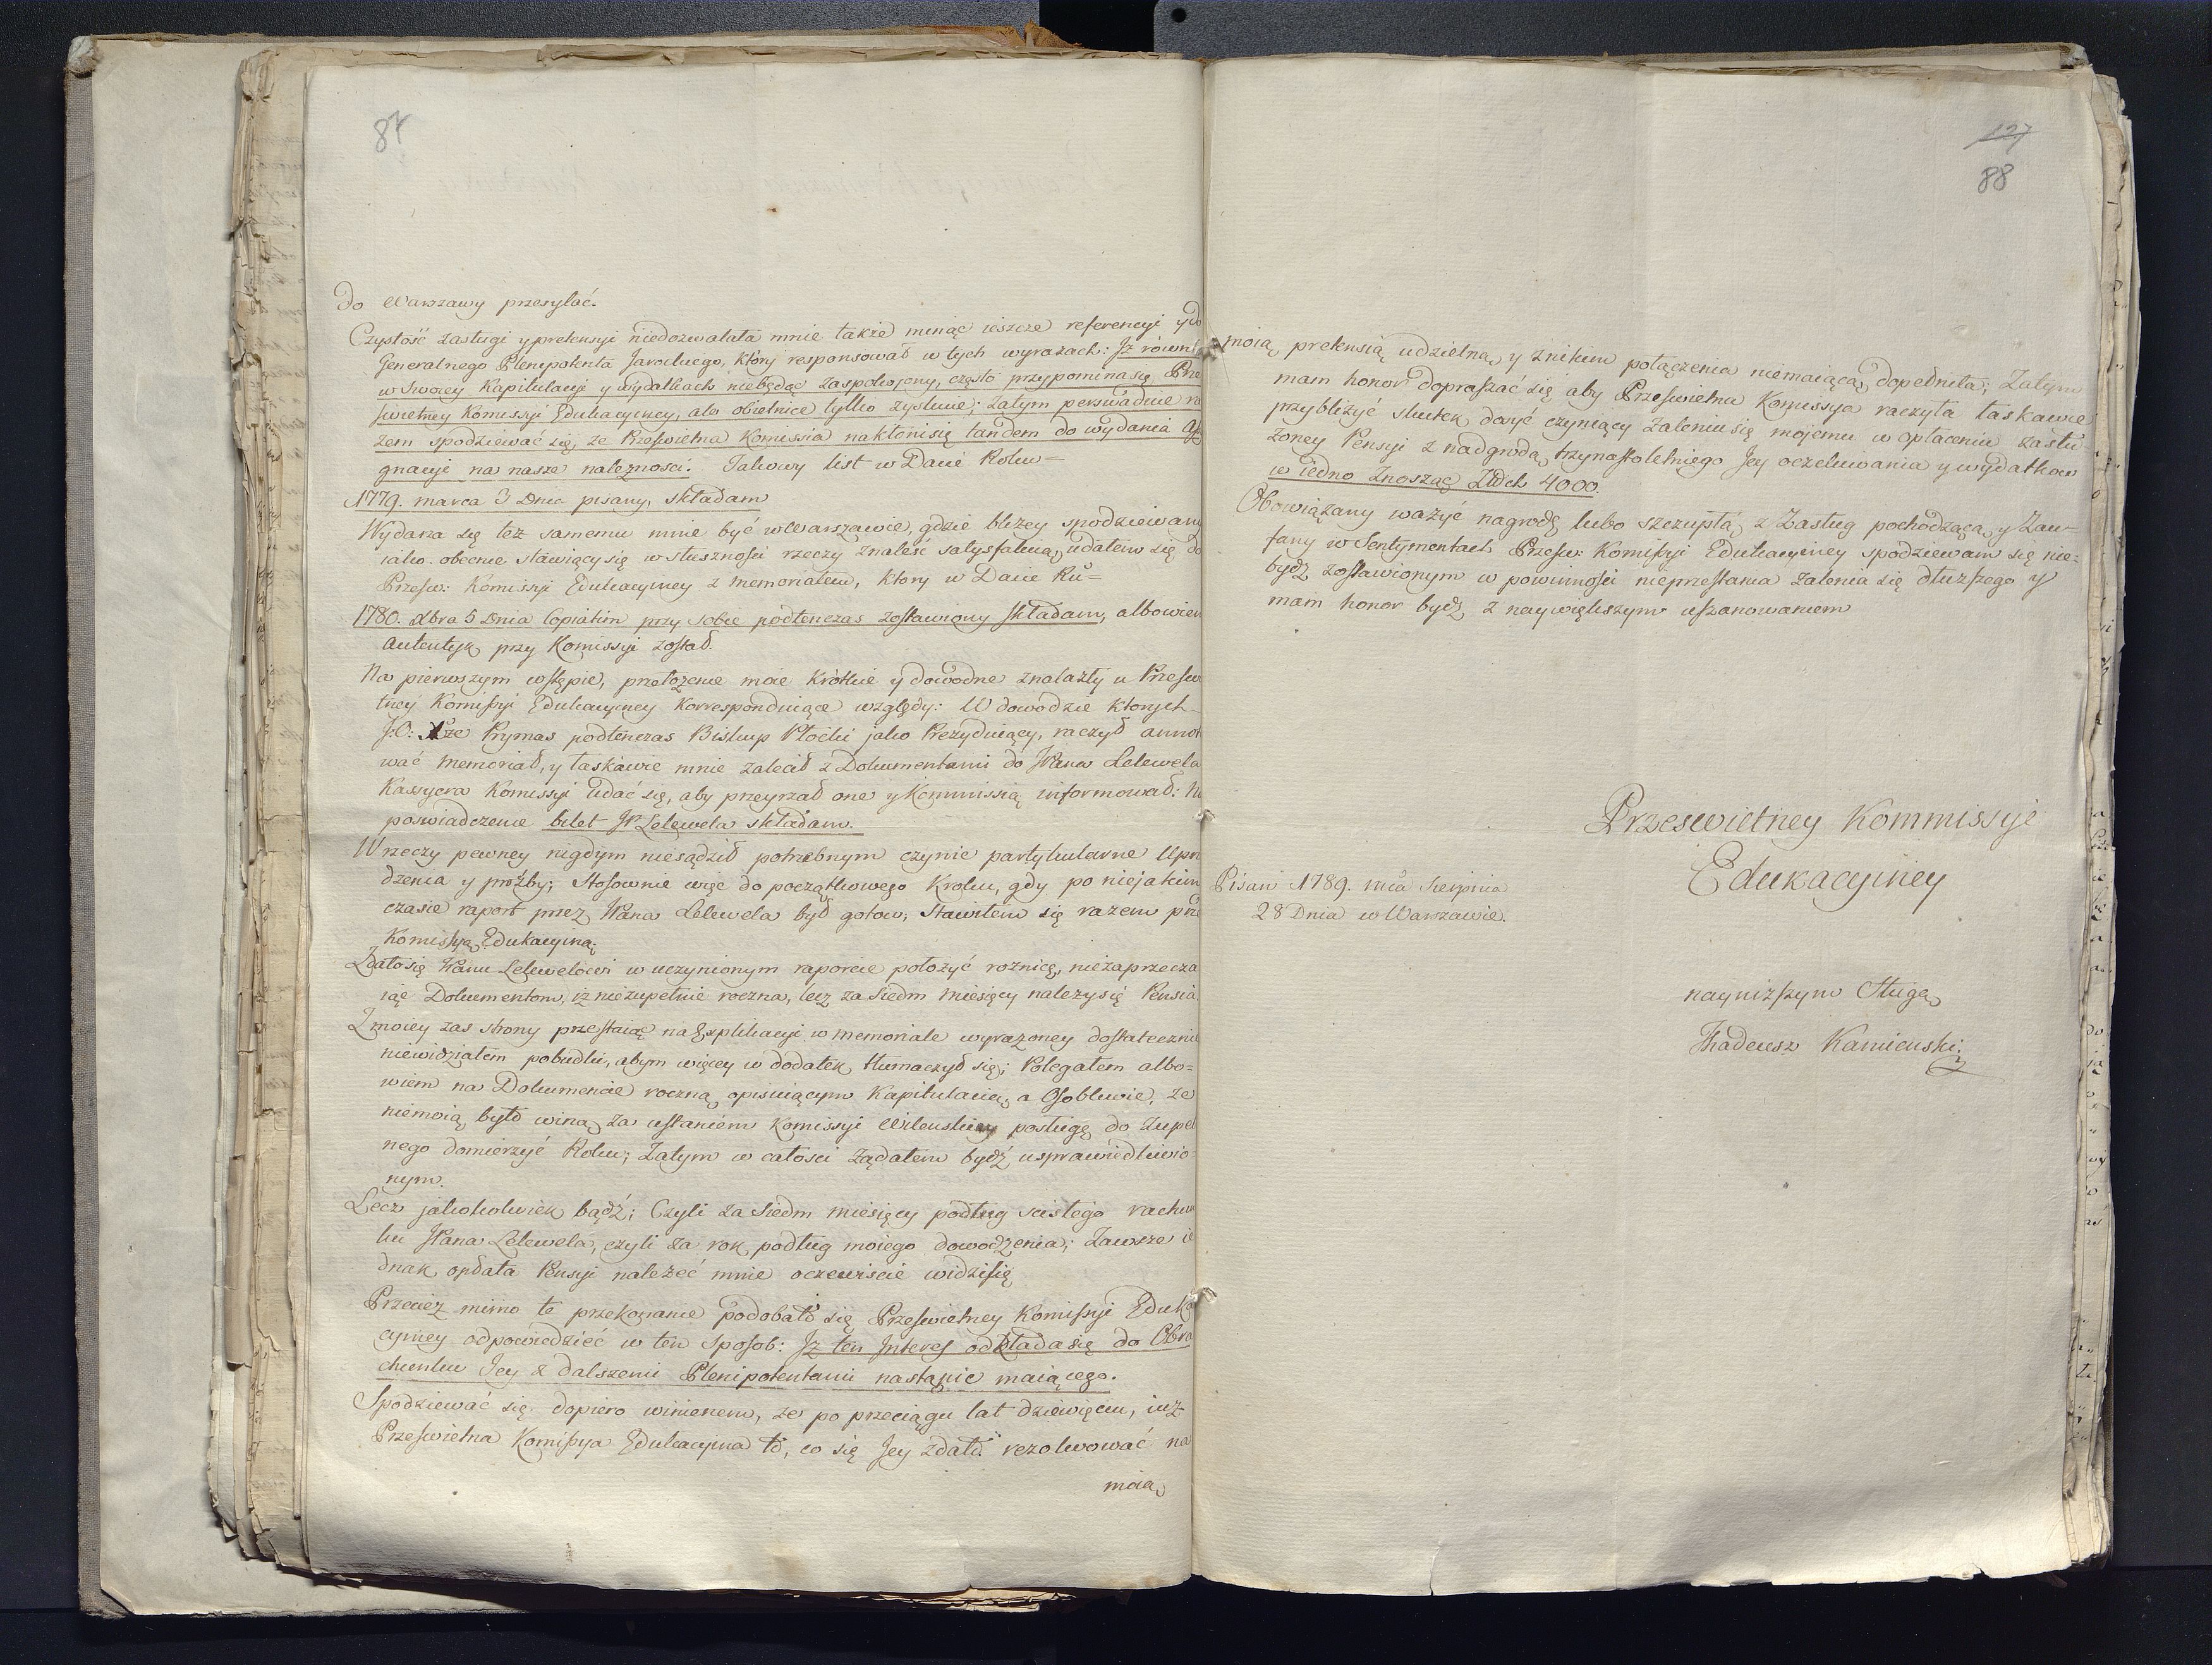 87
do Warszawy przesyłać.
Czystość zasługi y pretensyi niedozwalała mnie także minąć ieszcze referencyi y do
Generalnego Plenipotenta Jarockiego, który responsował w tych wyrazach: Jż równi
w swoiey Kapitulacyi y wydatkach niebędąc zaspokojony, często przypomina się Prze
świetney Komissyi Edukacyiney, ale obietnice tylko zyskuie; zatym perswaduie ra
zem spodziewać się, że Prześwietna Komissia nakłoni się tandem do wydania Assy
gnacyi na nasze należności. Takowy list w Dacie Roku=
1779. marca 3 Dnia pisany, składam
Wydana się też samemu mnie być w Warszawie, gdzie bliżey spodziewany
iako obecnie stawiący się w słuszności rzeczy znaleść satysfakcyą, udałem się do
Przesw: Komissyi Edukacyiney z memoriałem, ktory w Dacie Ru=
1780. Xbra 5 Dnia Copiatim przy sobie podtenczas zostawiony składam, albowiem
Autentyk przy Komissyi został.
Na pierwszym wstępie, przełożenie moie krótkie y dowodne znalazły u Przesw
tney Komissyi Edukacyiney korresponduiące względy: W dowodzie ktorych
J:O: Xże Prymas podtenczas Biskup Płocki jako Prezyduiący, raczył annot
wać memoriał, y łaskawie mnie zalecił z Dokumentami do JPana Lelewela
Kassyera Komissyi udać się, aby przeyrzał one y Kommissią informował: Na
poswiadczenie bilet JP Lelewela składam.
W rzeczy pewney nigdym niesądził potrzebnym czynie partykularne Uprz
dzenia y prożby; Stosownie więc do początkowego Kroku, gdy po niejakim
czasie raport przez JPana Lelewela był gotow, stawiłem się razem prze
Komissyą Edukacyiną;
Zdało się JPanu Lelewelowi w uczynionym raporcie położyć roznicę, niezaprzecza
iąc Dokumentom, iz niezupełnie roczna, lecz za siedm miesięcy należy się Pensia.
Z moiey zas strony przestaiąc na Explikacyi w memoriale wyrażoney dostatecznie
niewidziałem pobudki, abym więcey w dodatek tłumaczył się; Polegałem albo=
wiem na Dokumencie roczną opisuiącym Kapitulacią, a Osobliwie, że
niemoią było winą, za ustaniem Komissyi Wileńskiey posługę do zupeł
nego domierzyć Roku; Zatym w całości żądałem bydź usprawiedliwio=
nym.
Lecz jakokolwiek bądź; Czyli za siedm miesięcy podług scisłego rachun
ku JPana Lelewela, czyli za rok podług moiego dowodzenia; Zawsze ie
dnak opłata Pensyi należeć mnie oczewiscie widzi się
Przecież mimo te przekonanie podobało się Prześwietney Komissyi Eduka
cyiney odpowiedzieć w ten sposob: Jż ten Interes odkłada się do Obra
chunku Jey z dalszemi Plenipotentami nastąpić maiącego.
Spodziewać się dopiero winienem, że po przeciągu lat dziewięciu, iuż
Prześwietna Komissya Edukacyina to, co się Jey zdało rezolwować na
moią
127
88
moią pretensią udzielną y z nikim połączenia niemaiącą, dopełniła; Zatym
mam honor dopraszać się aby Prześwietna Komissya raczyła łaskawie
przybliżyć skutek dosyć czyniący żaleniu się mojemu w opłaceniu zasłu
żoney Pensyi z nadgrodą trzynastoletniego Jey oczekiwania y wydatkow
w iedno znosząc Złłch 4000.
Obowiązany ważyć nagrodę lubo szczupłą, z zasług pochodzącą, y Zau=
fany w Sentymentach Przesw: Komissyi Edukacyiney spodziewam się nie=
bydź zostawionym w powinności nieprzestania żalenia się dłuższego y
mam honor bydź z naywiększym uszanowaniem
Przeswietney Kommissyi
Edukacyiney
Pisan 1789. mca Sierpnia
28 Dnia w Warszawie.
nayniższym Sługą
Thadeusz Kamienski